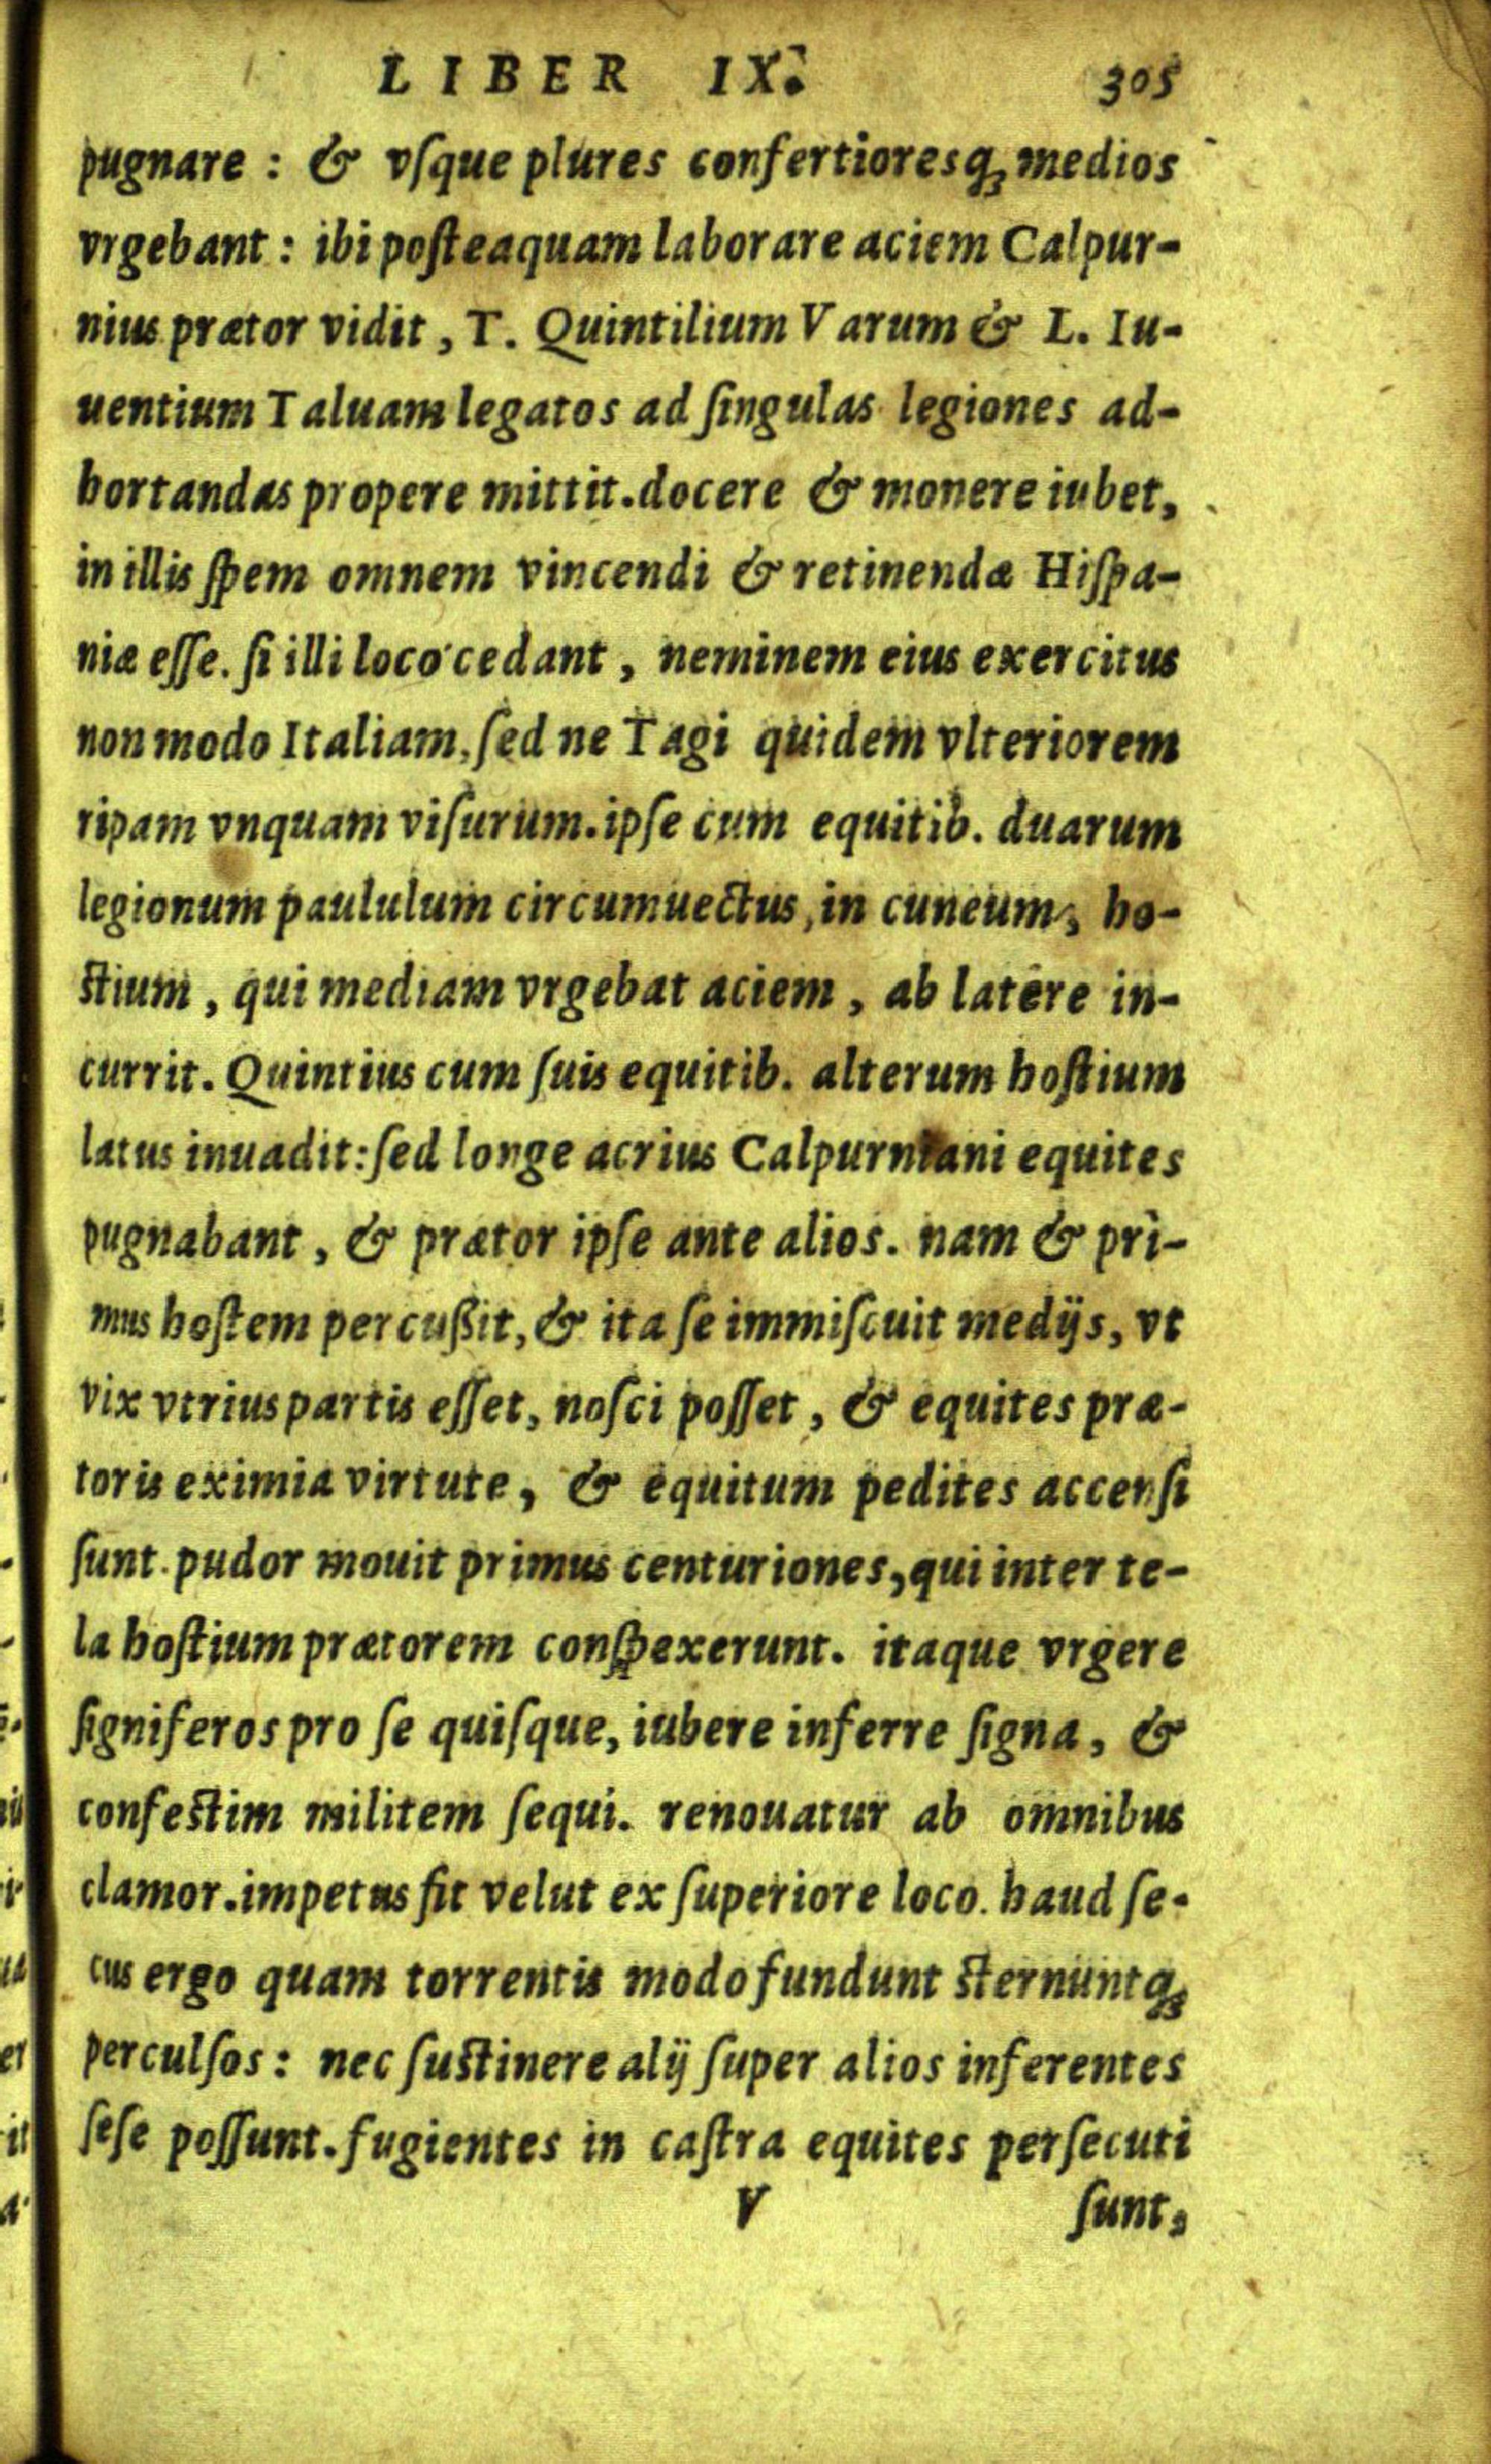 LIBER IX. 305
pugnare : & vſque plures confertioresq; medios
vrgebant : ibi poſteaquam laborare aciem Calpur-
nius prætor vidit , T. Quintilium Varum & L. Iu-
uentium Taluam legatos ad ſingulas legiones ad-
hortandas propere mittit. docere & monere iubet,
in illis ſpem omnem vincendi & retinendæ Hiſpa-
niæ eſſe. ſi illi loco cedant , neminem eius exercitus
non modo Italiam, ſed ne Tagi quidem vlteriorem
ripam vnquam viſurum. ipſe cum equitib. duarum
legionum paululum circumuectus, in cuneum, ho-
ſtium , qui mediam vrgebat aciem , ab latere in-
currit. Quintius cum ſuis equitib. alterum hoſtium
latus inuadit: ſed longe acrius Calpurniani equites
pugnabant , & prætor ipſe ante alios. nam & pri-
mus hoſtem percußit, & ita ſe immiſcuit medijs, vt
vix vtrius partis eſſet, noſci poſſet , & equites præ-
toris eximia virtute, & equitum pedites accenſi
ſunt. pudor mouit primus centuriones, qui inter te-
la hoſtium prætorem conſpexerunt. itaque vrgere
ſigniferos pro ſe quiſque, iubere inferre ſigna, &
confeſtim militem ſequi. renouatur ab omnibus
clamor. impetus fit velut ex ſuperiore loco. haud ſe-
cus ergo quam torrentis modo fundunt ſternuntq;
perculſos : nec ſuſtinere alij ſuper alios inferentes
ſeſe poſſunt. fugientes in caſtra equites perſecuti
V ſunt,